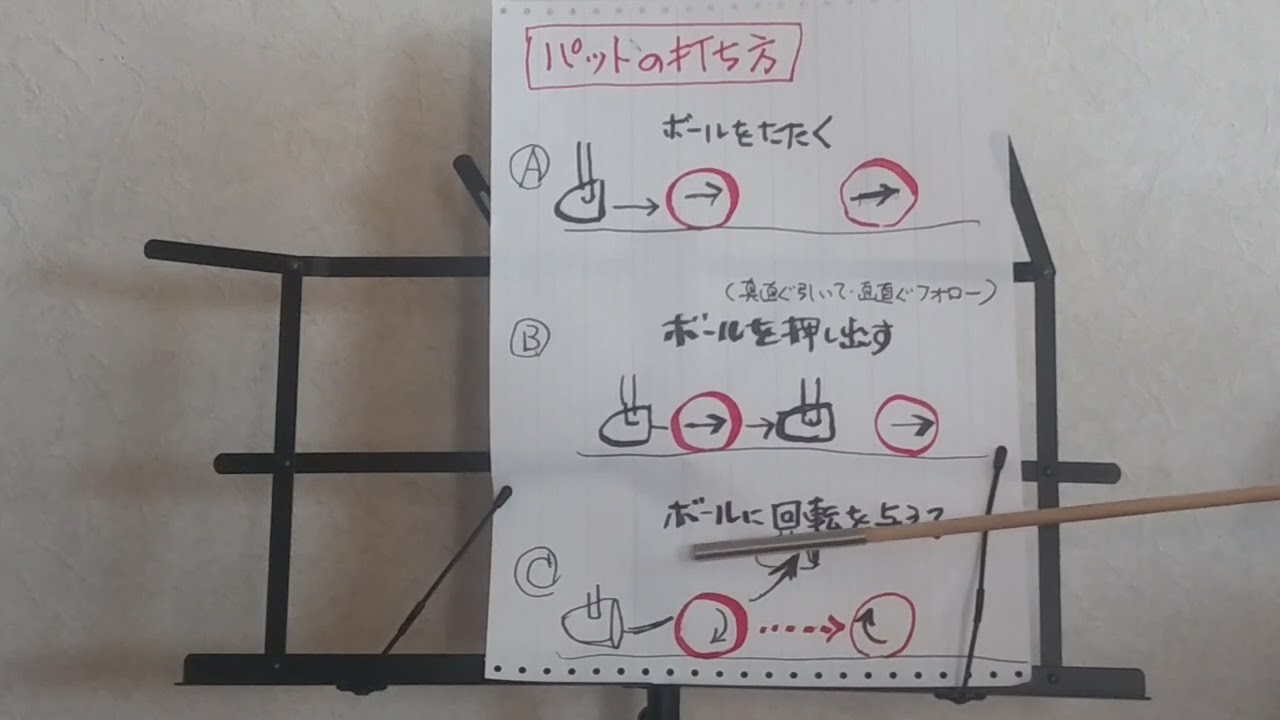 パットの打ち方
ボールをたたく
A
(真直ぐ引いて・真直ぐフォロー)
ボールを押し出す
B
ボールに回転を
C